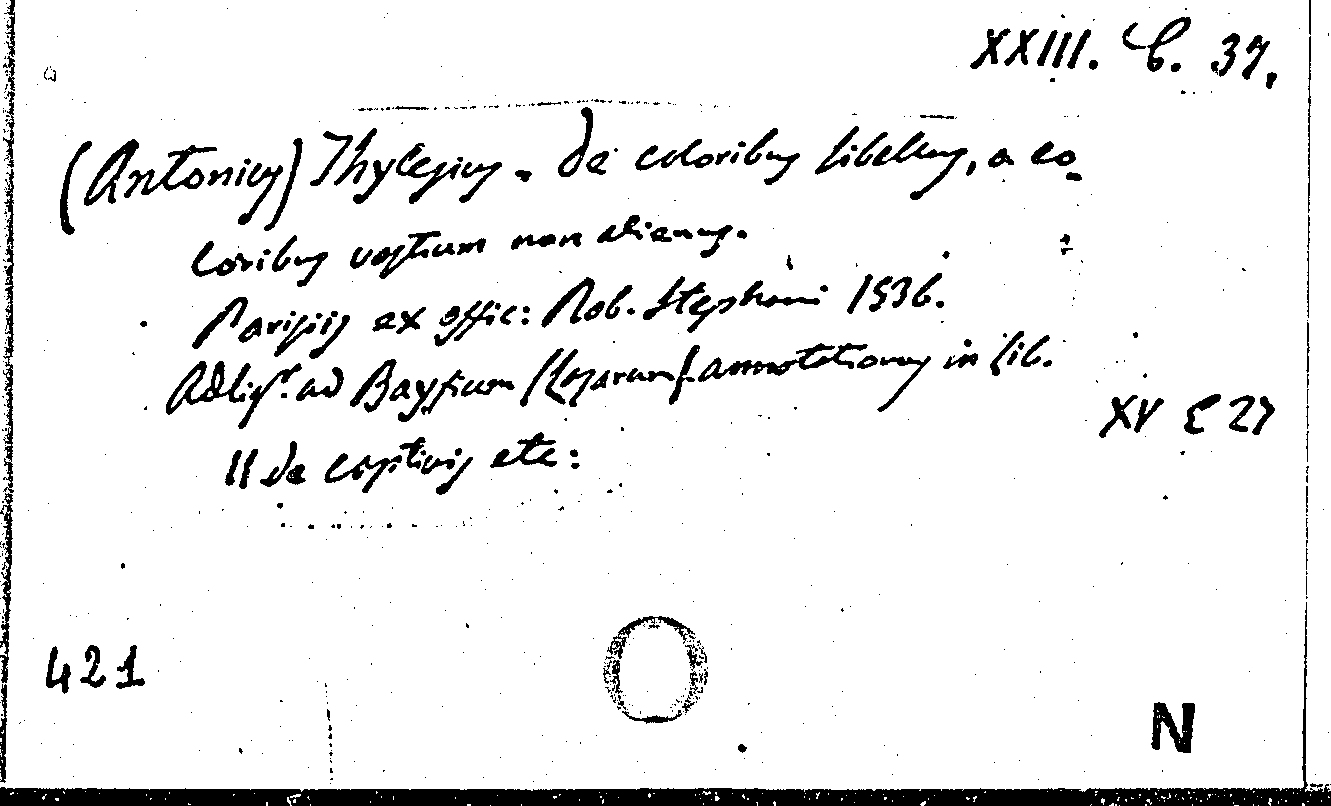 XXIII. C. 37.
(Antonius) Thylesius. de coloribus libellus, a co-
loribus vestium non alienus.
Parisiis ex offic: Rob. Stephani 1536.
Adligr. ad Bayfium (Lazarum) annotationes in lib.
XV E 27
II de captivis etc:
421
N